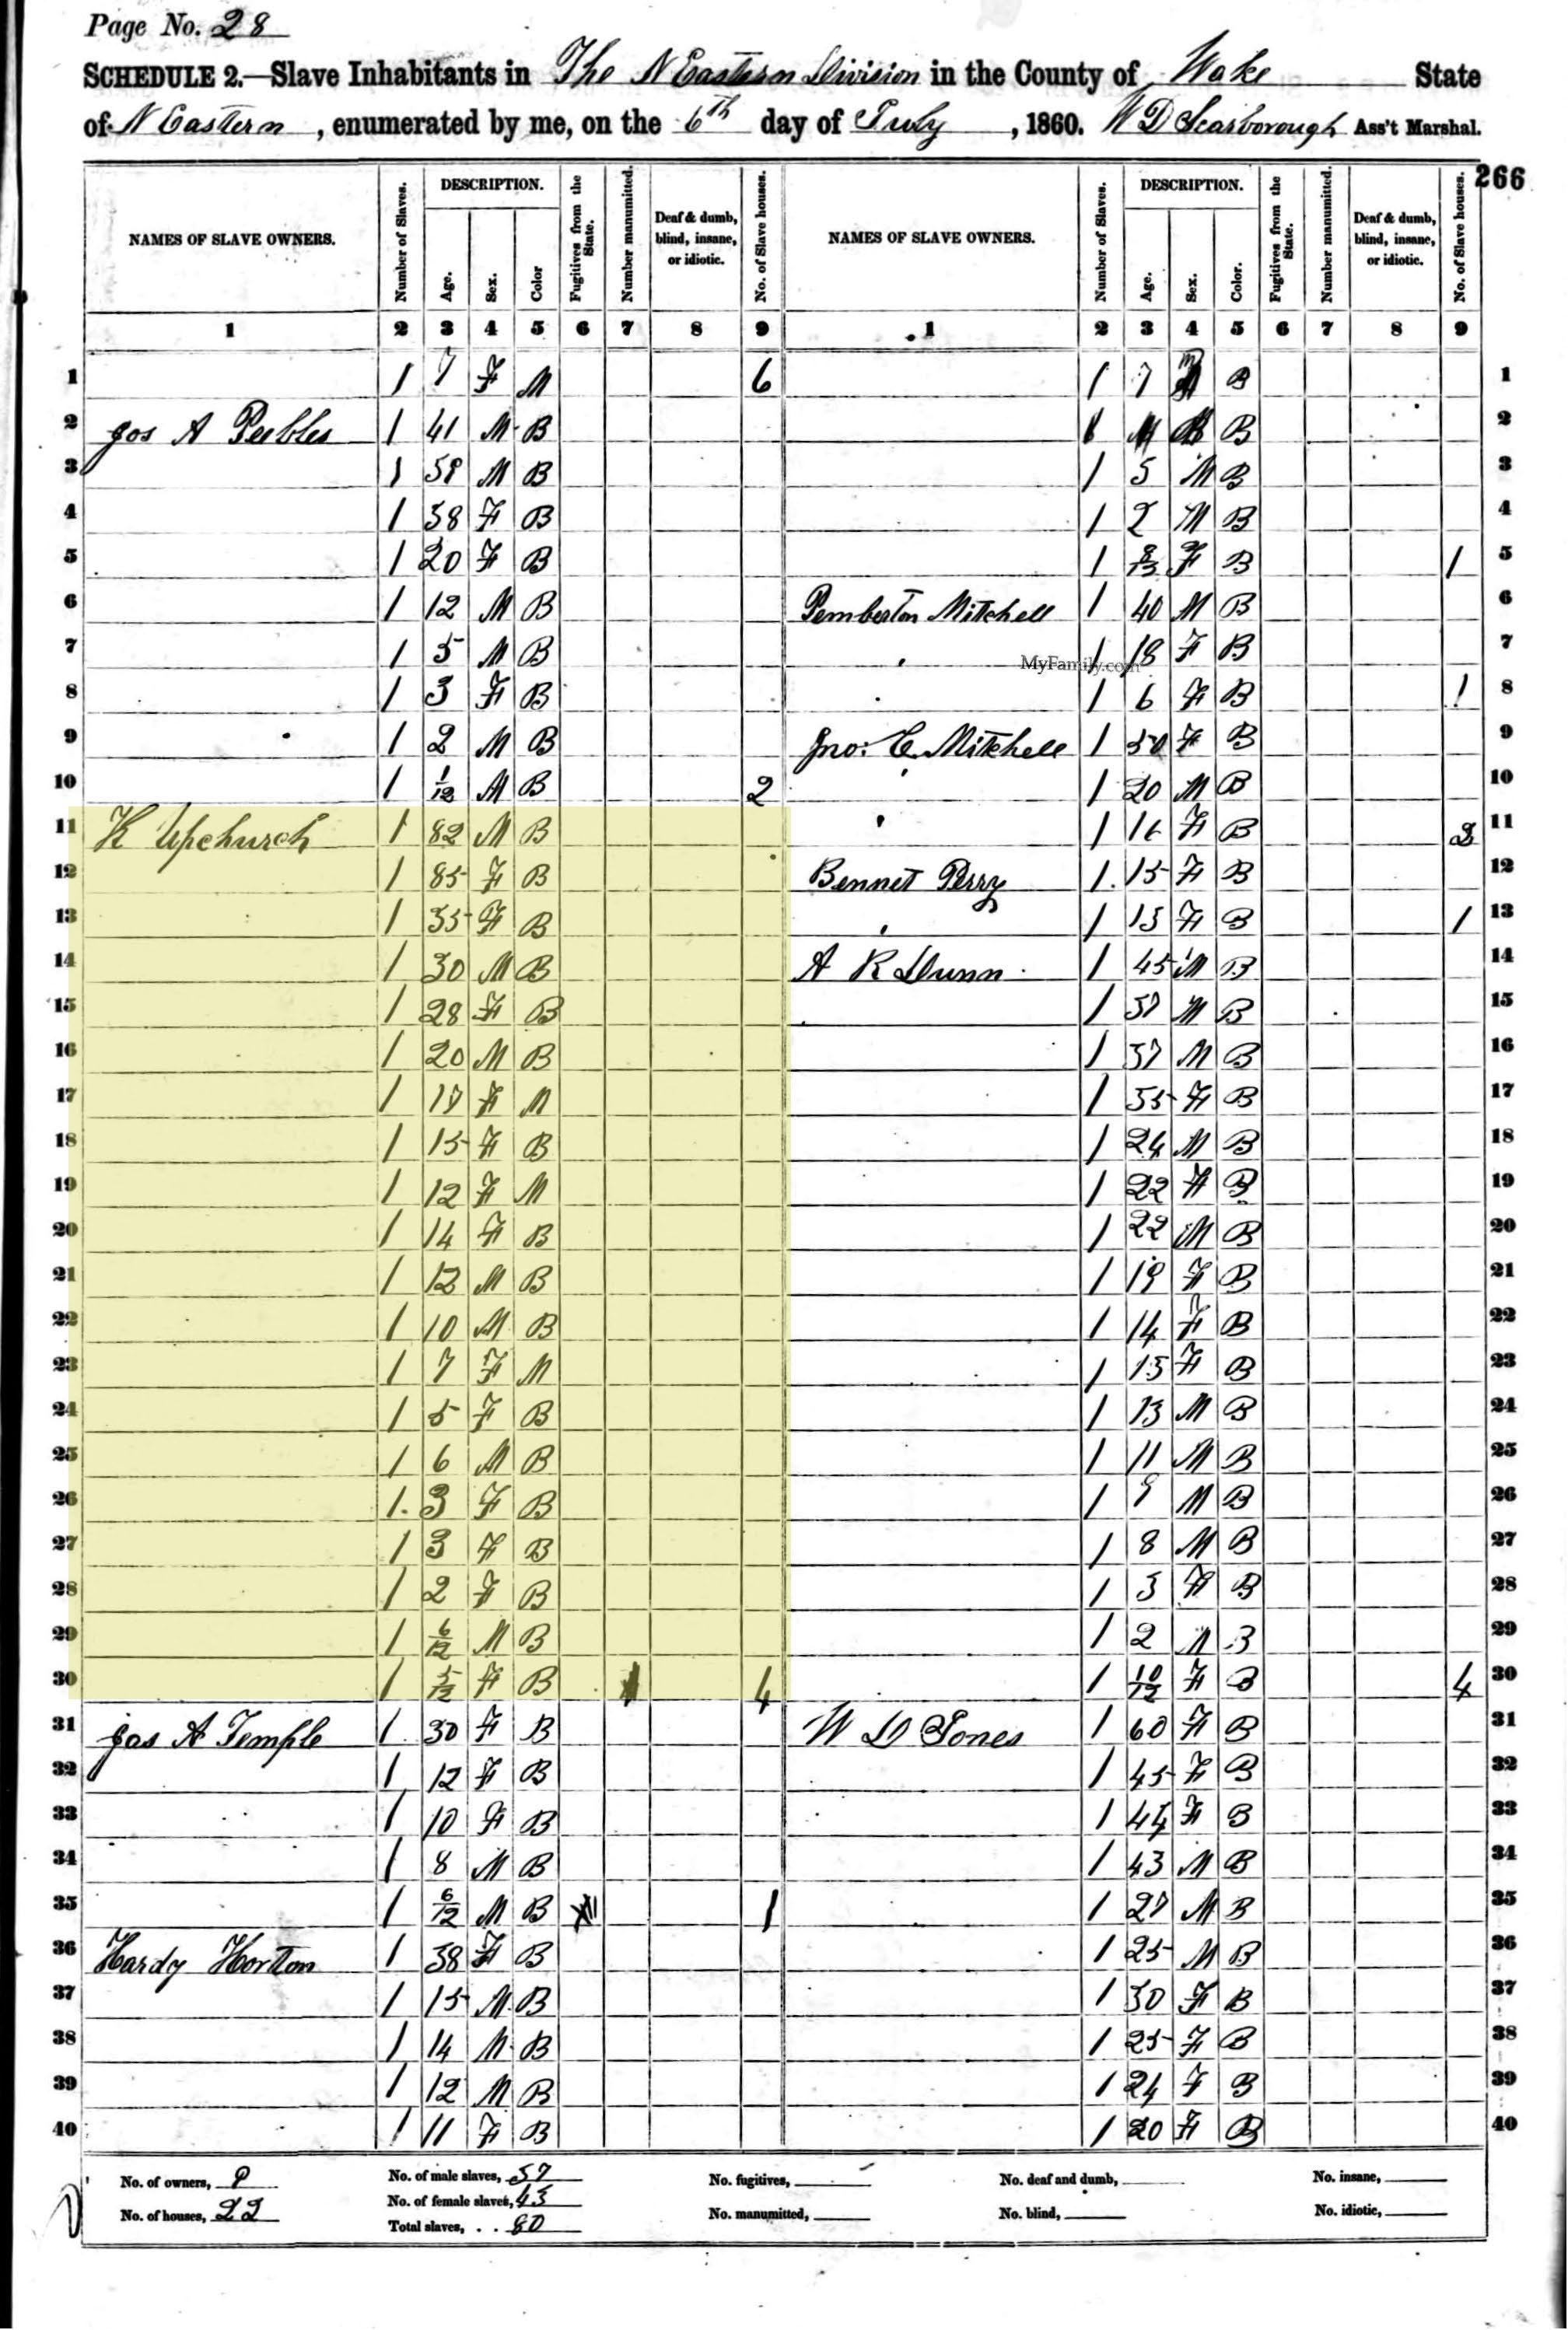 Page No. 28
SCHEDULE 2.—Slave Inhabitants in The N Eastern Division in the County of Wake State
of N Eastern, enumerated by me, on the 6th day of July, 1860. W D Scarborough Ass't Marshal.
266
NAMES OF SLAVE OWNERS. Number of Slaves. DESCRIPTION. Age. Sex. Color Fugitives from the State. Number manumitted. Deaf & dumb, blind, insane, or idiotic. No. of Slave houses. NAMES OF SLAVE OWNERS. Number of Slaves. DESCRIPTION. Age. Sex. Color. Fugitives from the State. Number manumitted. Deaf & dumb, blind, insane, or idiotic. No. of Slave houses.
1 2 3 4 5 6 7 8 9 1 2 3 4 5 6 7 8 9
1 1 7 F M 6 1 7 B 1
2 Jos A Peebles 1 41 M B 1 B 2
3 1 M B 1 5 M B 3
4 1 38 F B 1 2 M B 4
5 1 20 F B 1 F B 1 5
6 1 12 M B Pemberton Mitchell 1 40 M B 6
7 1 5 M B MyFamily.com 1 18 F B 7
8 1 3 F B 1 6 F B 1 8
9 1 2 M B Jno. C. Mitchell 1 50 F B 9
10 1 1/12 M B 2 1 20 M B 10
11 K Upchurch 1 82 M B 1 16 F B 2 11
12 1 85 F B Bennet Perry 1 15 F B 12
13 1 35 F B 1 13 F B 1 13
14 1 30 M B A R Dunn 1 45 M B 14
15 1 28 F B 1 37 M B 15
16 1 20 M B 1 37 M B 16
17 1 17 F M 1 35 F B 17
18 1 15 F B 1 24 M B 18
19 1 12 F M 1 22 F B 19
20 1 14 F B 1 22 M B 20
21 1 12 M B 1 19 F B 21
22 1 10 M B 1 14 F B 22
23 1 7 F M 1 15 F B 23
24 1 5 F B 1 13 M B 24
25 1 6 M B 1 11 M B 25
26 1 3 F B 1 9 M B 26
27 1 3 F B 1 8 M B 27
28 1 2 F B 1 3 F B 28
29 1 6/12 M B 1 2 M B 29
30 1 5/12 F B 4 1 10/12 F B 4 30
31 Jas A Temple 1 30 F B W D Jones 1 60 F B 31
32 1 12 F B 1 45 F B 32
33 1 10 F B 1 44 F B 33
34 1 8 M B 1 43 M B 34
35 1 6/12 M B 1 1 27 M B 35
36 Hardy Horton 1 38 F B 1 25 M B 36
37 1 15 M B 1 30 F B 37
38 1 14 M B 1 25 F B 38
39 1 12 M B 1 24 F B 39
40 1 11 F B 1 20 F B 40
No. of owners, 9 No. of male slaves, 37 No. fugitives, No. deaf and dumb, No. insane,
No. of houses, 22 No. of female slaves, 43 No. manumitted, No. blind, No. idiotic,
Total slaves, . . 80